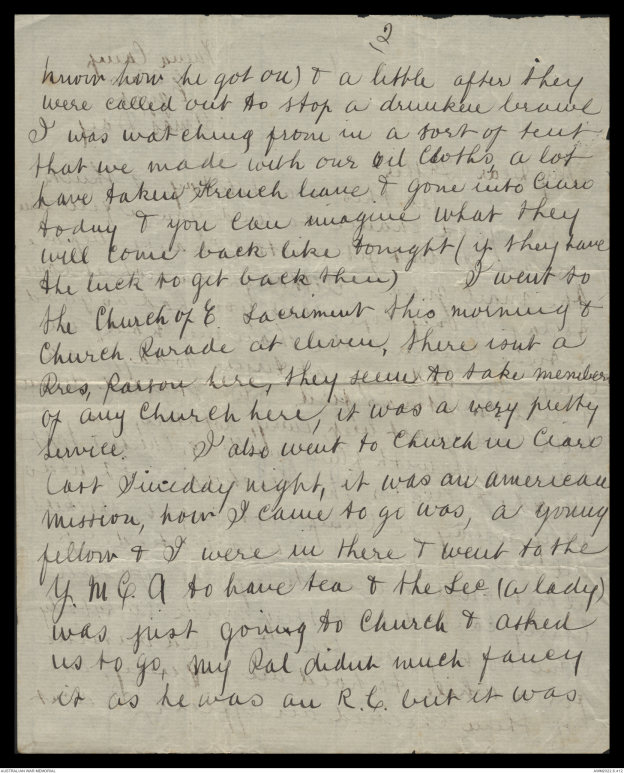 2
know how he got on) & a little after they
were called out to stop a drunken brawl
I was watching from in a sort of tent
that we made with our oil cloths, a lot
have taken French leave & gone into Ciaro
today & you can imagine what they
will come back like tonight (if they have
the luck to get back then) I went to
the Church of E. Sacriment this morning &
Church Parade at eleven, there isnt a
Pres, Parson here, they seem to take members
of any Church here, it was a very pretty
service. I also went to Church in Ciaro
last night, it was an american
mission, how I came to go was, a young
fellow & I were in there & went to the
Y. M. C. A to have tea & the Sec (a lady)
was just going to Church & asked
us to go, my Pal didnt much fancy
it as he was an R. C. but it was
AUSTRALIAN WAR MEMORIAL